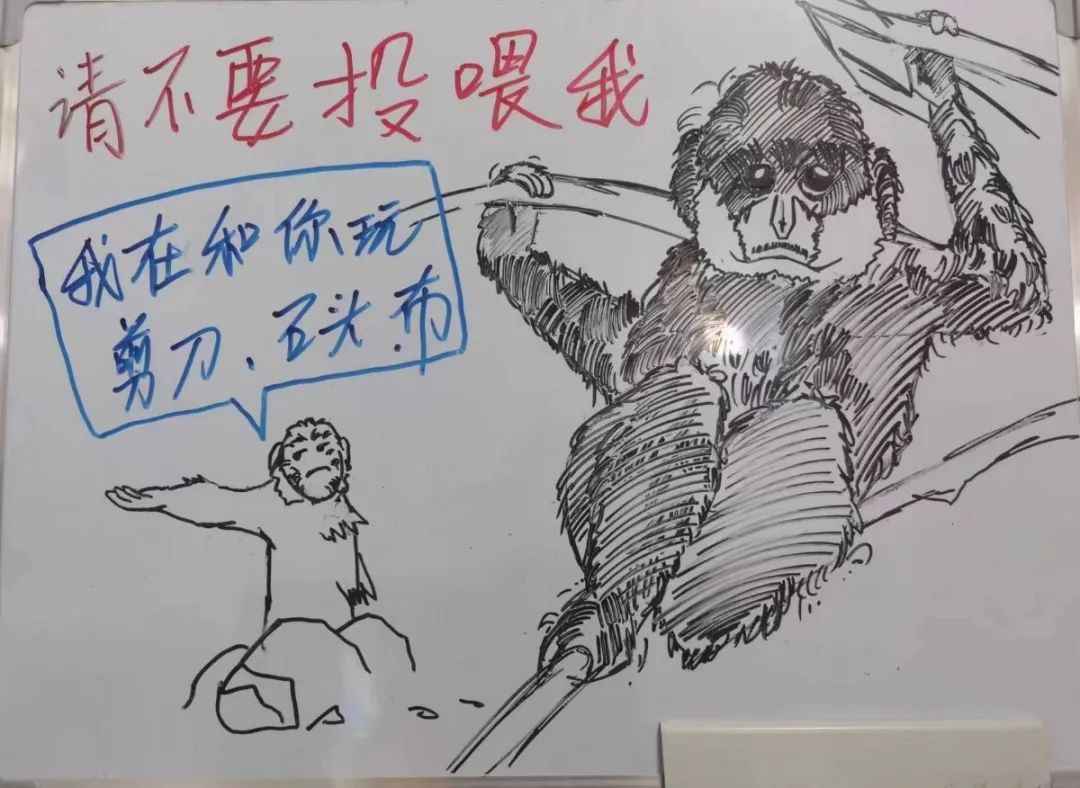 请不要投喂我
我在和你玩
剪刀、石头、布